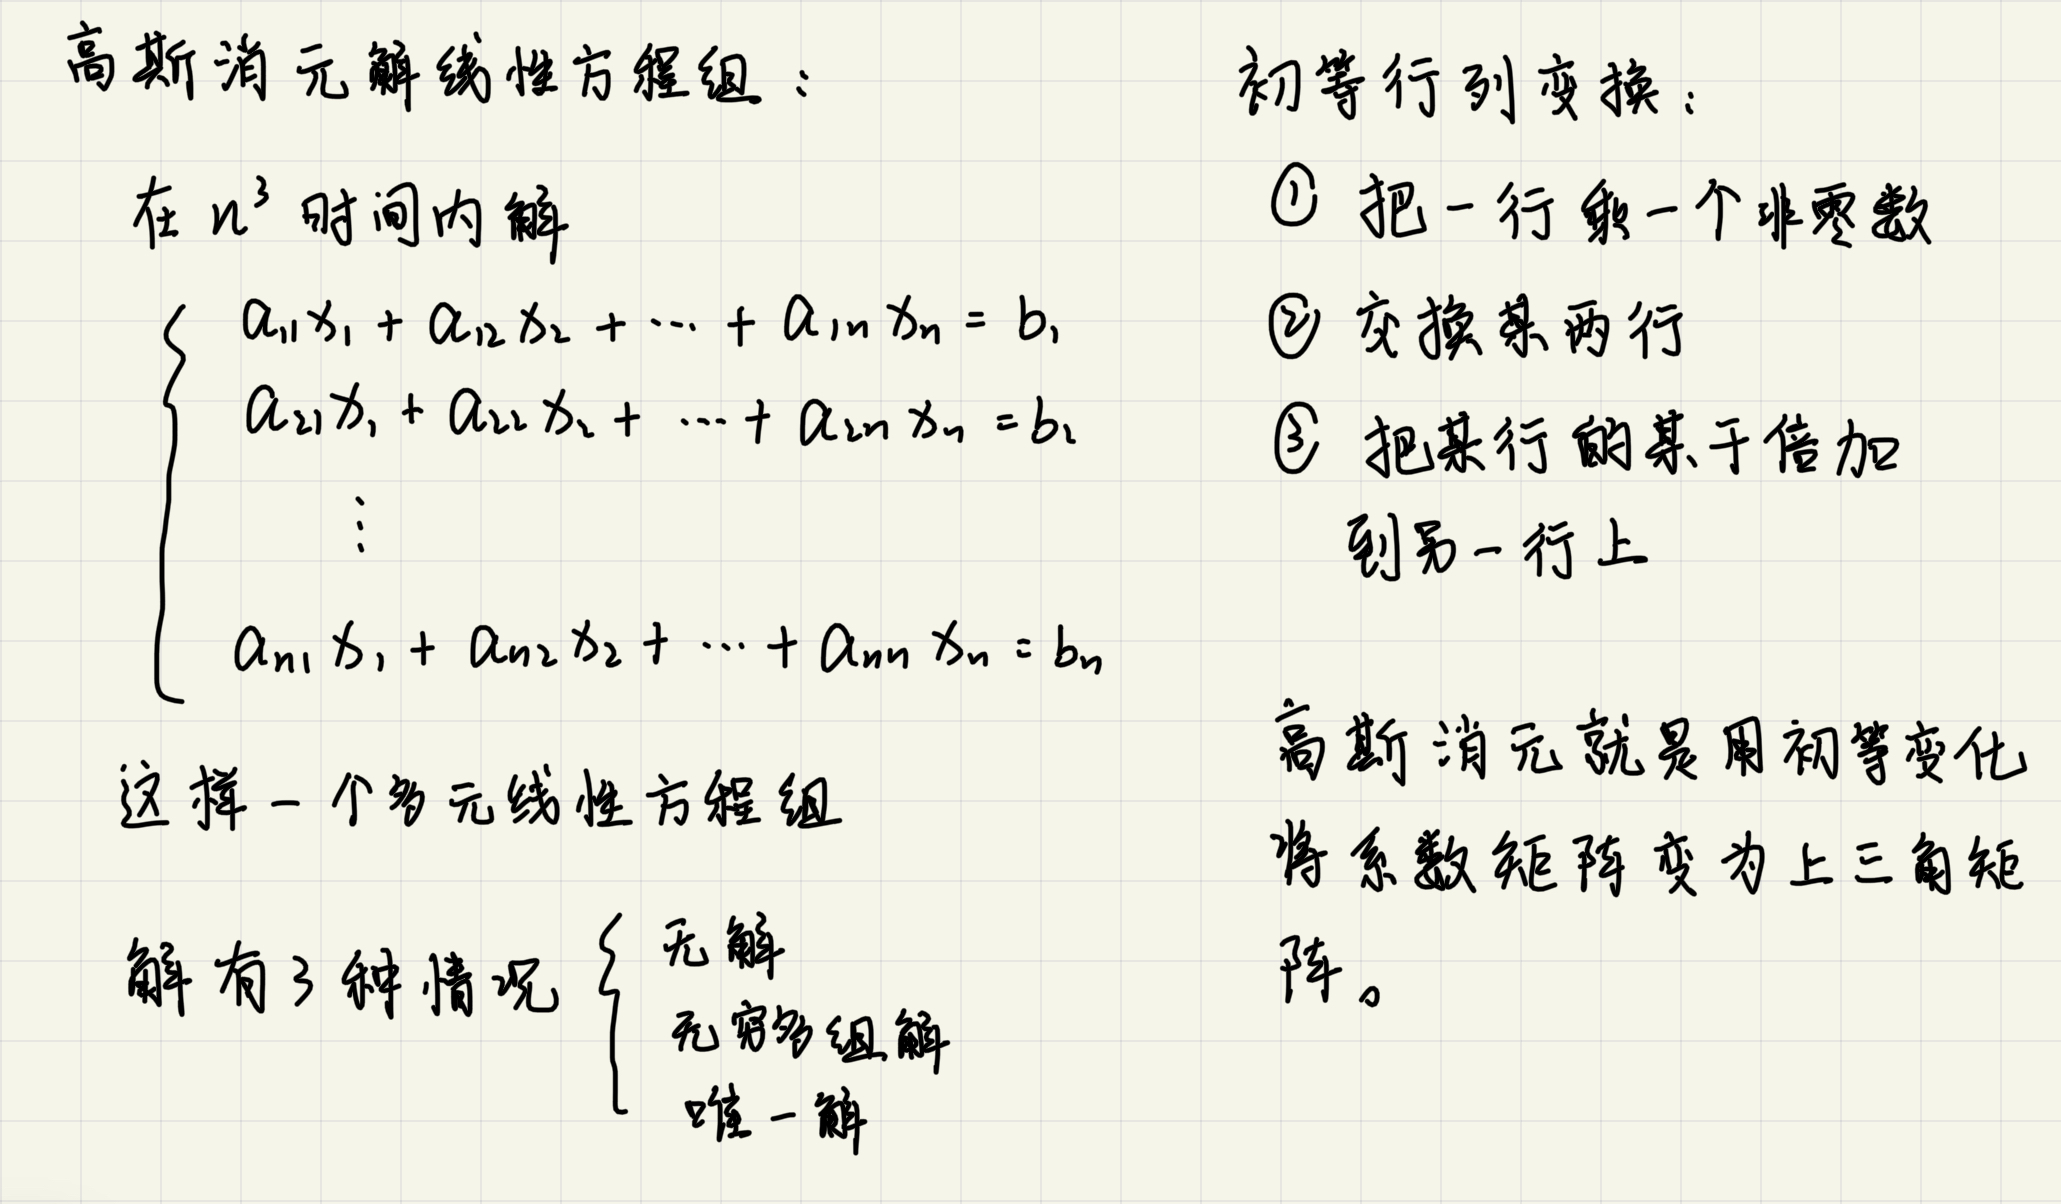 高斯消元解线性方程组：
在 n³ 时间内解
a₁₁x₁ + a₁₂x₂ + ⋯ + a₁ₙxₙ = b₁
a₂₁x₁ + a₂₂x₂ + ⋯ + a₂ₙxₙ = b₂
⋮
aₙ₁x₁ + aₙ₂x₂ + ⋯ + aₙₙxₙ = bₙ
这样一个多元线性方程组
解有3种情况
无解
无穷多组解
唯一解
初等行列变换：
① 把一行乘一个非零数
② 交换某两行
③ 把某行的某干倍加
到另一行上
高斯消元就是用初等变化
将系数矩阵变为上三角矩
阵。